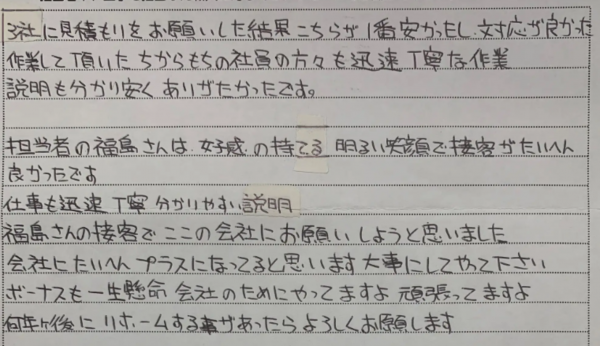 3社に見積もりをお願いした結果こちらが1番安かったし、対応が良かった
作業して頂いたちからもちの社員の方々も迅速丁寧な作業
説明も分かり安くありがたかったです。
担当者の福島さんは、好感の持てる明るい笑顔で接客がたいへん
良かったです
仕事も迅速丁寧分かりやすい説明
福島さんの接客でここの会社にお願いしようと思いました
会社にたいへんプラスになってると思います大事にしてやって下さい
ボーナスも一生懸命会社のためにやってますよ頑張ってますよ
何年ヶ後にリホームする事があったらよろしくお願します